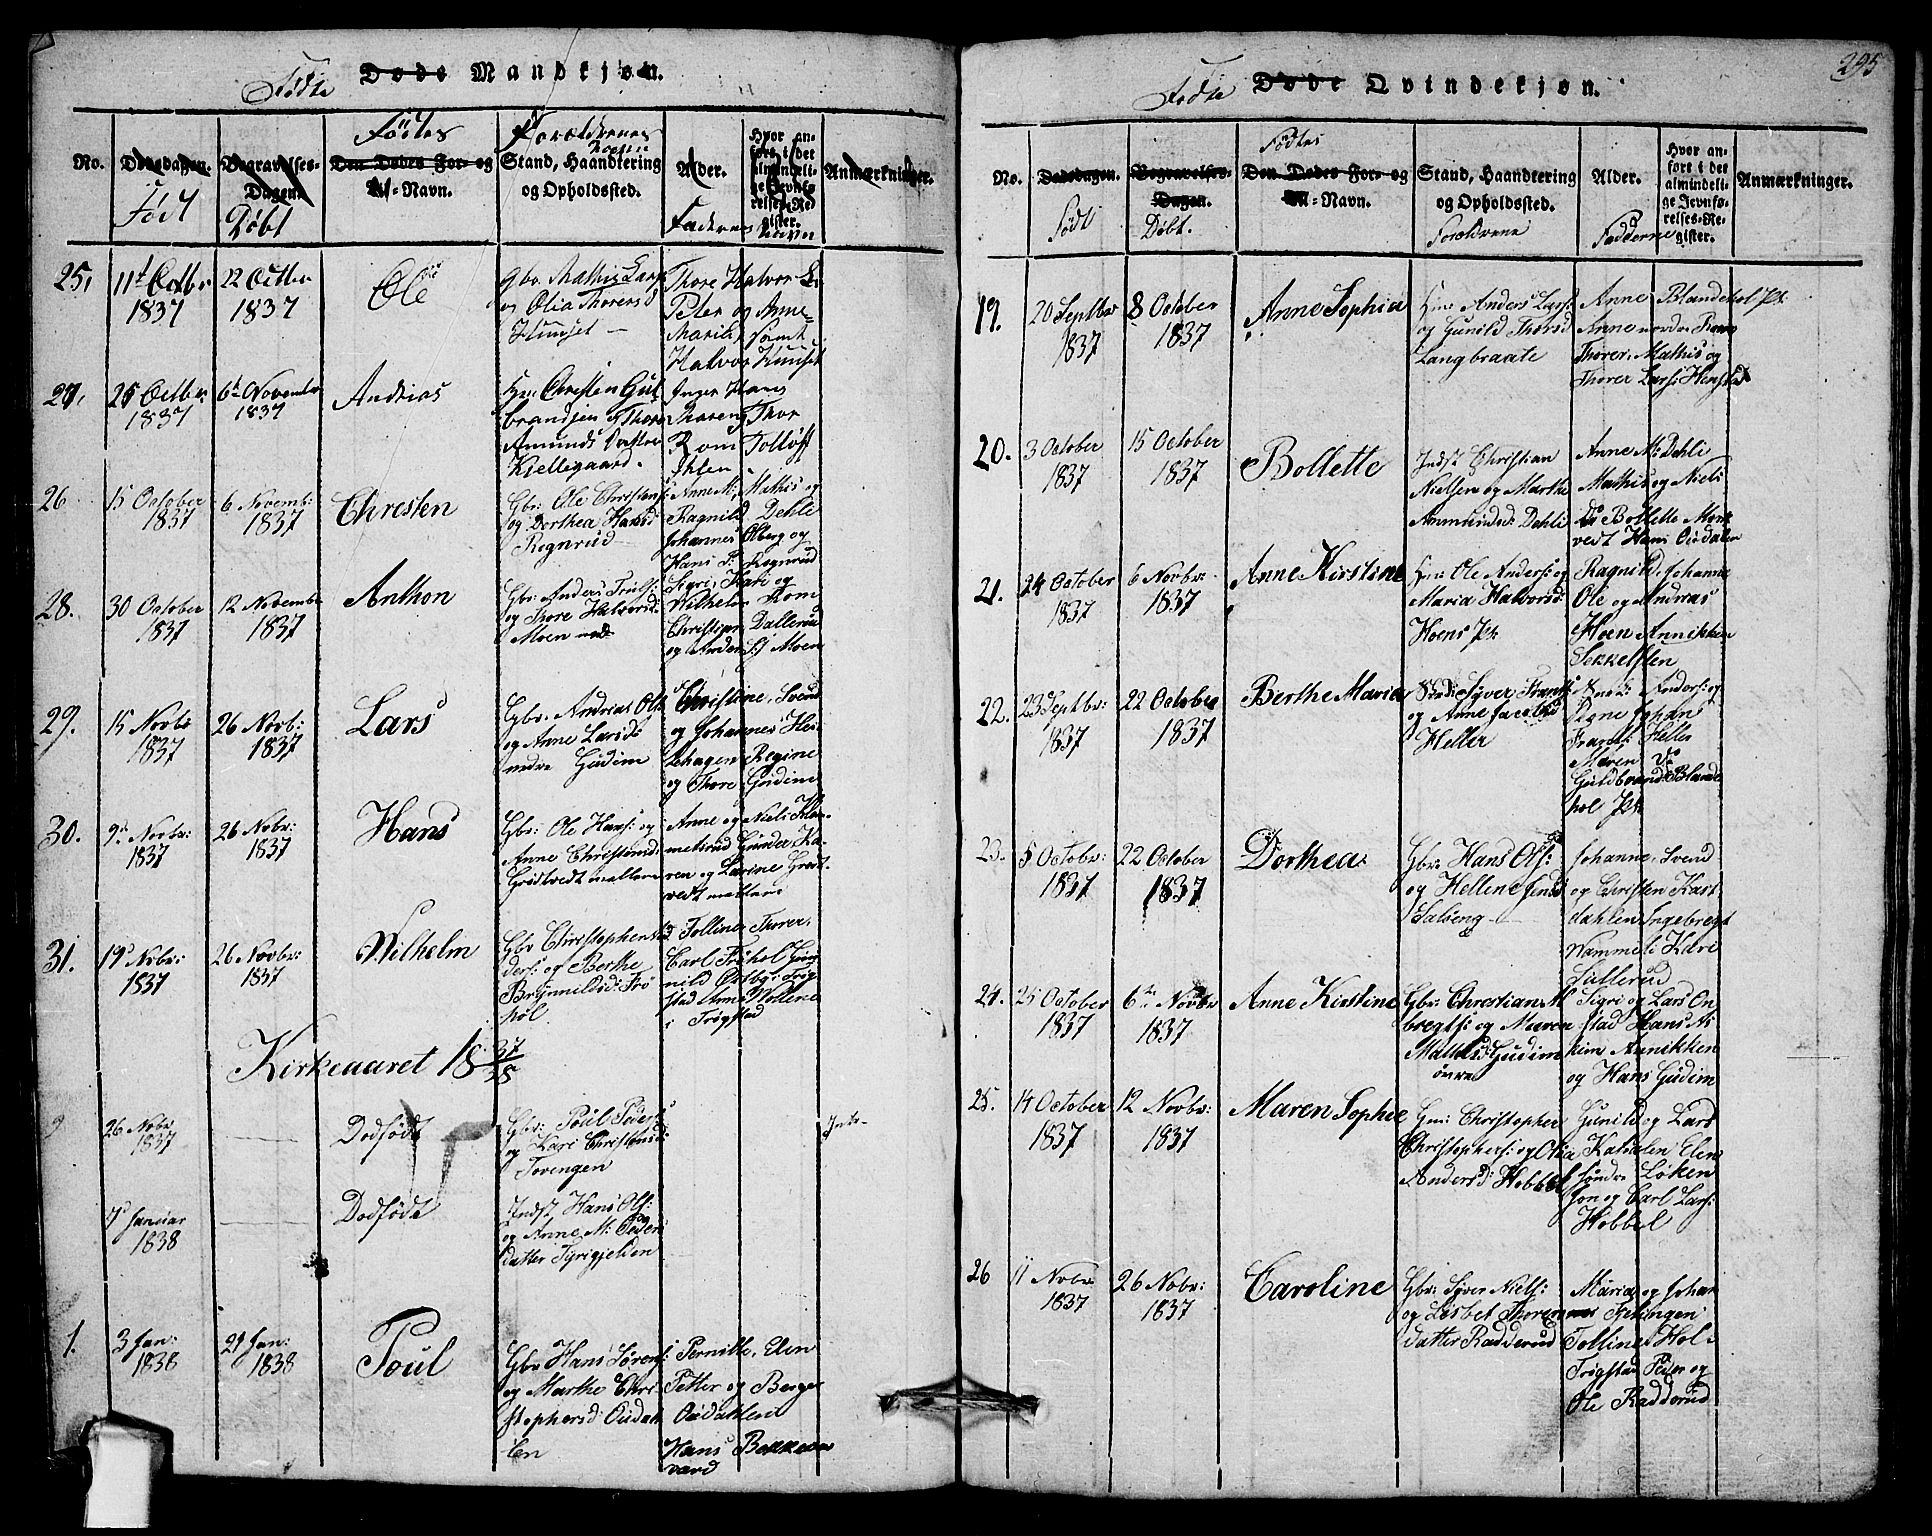 295
Fødte Døde Mandkjøn.
No.
Dødsdagen.
Født
Begravelses-
Dagen.
Døbt
Fødtes
Den Dødes For- og
Til-Navn.
Forældrenes
Stand, Haandtering
og Opholdssted.
Alder.
Faddernes Navn
Hvor an-
ført i det
almindeli-
ge Jevnfø-
relses-Re-
gister.
Anmærkninger.
25,
11t Octbr
1837
22 Octbr
1837
Ole
gbr. Mathis Lars
og Olia Thorers
Hunset
Thore Halvor
Peter og Anne
Marik, samt
Halvor Hunset
27,
25 Octbr
1837
6t Novembr
1837
Andrias
Chresten Gul
brandsen
Amunds Datter
Kjellegaard.
Inger Hans
Thor
Rom Tolløff
26
15 October
1837
6 Novemb:
1837
Chresten
Gbr: Ole Christens:
og Dorthea Hansd
Regnrud
Anne M, Mathis og
Ragnild Dehle
Johannes Olberg og
Hans Regnrud
28.
30 October
1837
12 Novembr
1837
Anthon
Gbr: Anders Truls:
og Thore Halvorsd:
Moen
Sigri, Kari og
Wilhelm Rom
Christian Dallerud
og Anders Moen
29.
15 Novbr
1837
26 Novb:
1837
Lars
Gbr. Andrias Ols
og Anne Larsd:
nedre Gudim
Christine, Svend
og Johannes Hei
Regine
og Thore Gudim
30.
9de Novbr:
1837
26 Nobr:
1837
Hans
Gbr: Ole Hans: og
Anne Christensd:
Gristvedt mellem
Anne og Niels
Gunder Ka-
ren og Larine Grest-
vedt mellem
31.
19d Nobr:
1837
26. Novbr:
1837
Wilhelm
Gbr Christopher
ders: og Berthe
Brynnildsd: Frø
hol
Tolline Thorer,
Carl Frøhol Gun
nild Østby i Trøg
stad Anne
i Trøgstad
Kirkeaaret 18 37/38
26 Nobr
1837
Dødfødt
Gbr: Poul Peders
og Kari Christensd:
Tovengen
7 Januar
1838
Dødfødt
Indst Hans Ols:
og Anne M: Peders
datter Tyrigjelden
1.
3 Jan:
1838
21 Jan:
1838
Poul
Gbr Hans Sørens:
og Marthe Chri
stophersd: Ousdal
en
Pernille, Elen
Petter og Berger
Ousdahlen
Hans Bekkevar
vard
Fødte Døde Qvindekjøn.
No.
Dødsdagen.
Født
Begravelses-
Dagen.
Døbt.
Fødtes
Den Dødes For- og
Til-Navn.
Stand, Haandtering
og Opholdssted.
Forældrene
Alder.
Fadderne
Hvor an-
ført i det
almindeli-
ge Jevnfø-
relses-Re-
gister.
Anmærkninger.
19.
20 Septbr
1837
8 October
1837
Anne Sophia
Anders Lars:
og Gunild Thorsd
Langbraate
Anne Blandehol Pk
Anne nordre Rom
Thorer, Mathis og
Thorer Lars: Henstad
20.
3 October
1837
15 October
1837
Bollette
Indst Christian
Nielsen og Marthe
Ammundsd: Dehli
Anne M: Dehli
Mathis og Niels
do Bollette Mork
vedt Hans Ousdalen
21.
24 October
1837
6 Novbr.
1837
Anne Kirstine
Ole Anders: og
Maria Halvorsd:
Hoens Pk
Ragnild, Johanne
Ole og Andreas
Hoen Annikken
Sekkelsten
22.
23 Septbr:
1837
22 October
1837
Berthe Maria
Syver Frants
og Anne Jacobsd
Heller
Anders: og
Signe Johan
Frants: Heller
Maren do
Guldbrand Blande
hol Pk
23.
5 Octobr:
1837
22 October
1837
Dorthea
Gbr: Hans Ols:
og Hellene Jensd
Salieng
Johanne, Svend
og Christen Kast
dahlen Ingebregt
Wammeli Kare
Sullerud
24.
25 October
1837
6te Novbr
1837
Anne Kirstine
Gbr: Chrestian
bregts: og Maren
Mathisd: Gudim
øvre
Sigri og Lars On
stad Hans As
kim Annikken
og Hans Gudim
25.
14 October
1837
12 Novbr:
1837
Maren Sophie
Christopher
Christophers: og Olia
Andersd: Hobbel
Gunild og Lars
Katralen Elen
søndre Løken
Jon og Carl Lars:
Hobbel
26
11 Nobr
1837
26 Nobr:
1837
Caroline
Gbr: Syver Niels:
og Lisbet Thorer
datter Radderud
Maria og Johan
Fjelingen
Tolline Hol
Trøgstad Peder og
Ole Radderud